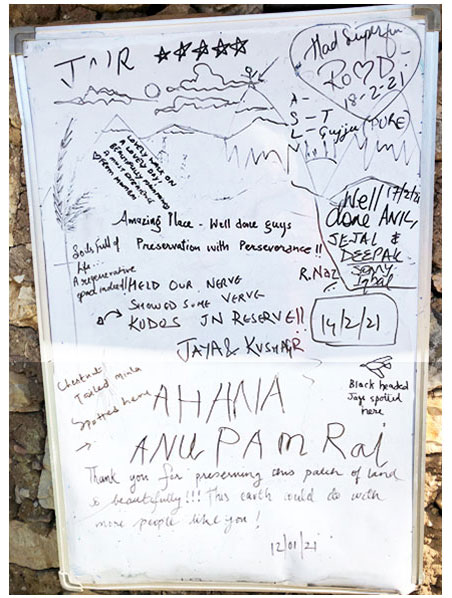 JNR ☆☆☆☆☆
Had Superfun
RO♡D
18-2-21
A -
S - T
L - Gujju (PURE)
M
LOVELY WALK ON
A LOVELY DAY!
BEAUTIFULLY MAINTAINED
17/2/21
Well
done ANIL,
JEJAL &
DEEPAK
Sony
Iqbal
Amazing Place - Well done guys
Preservation with Perseverance!!
R.Naz
Soils full of
life...
A regenerative
HELD OUR NERVE
SHOWED SOME VERVE
KUDOS JN RESERVE!!
JAYA & KUSHAGR
14/2/21
Chestnut
Tailed Minla
Spotted here
Black headed
Jaye spotted
here
AHANA
ANUPAM Rai
Thank you for preserving this patch of land
so beautifully!!! This earth could do with
more people like you!
12/01/21